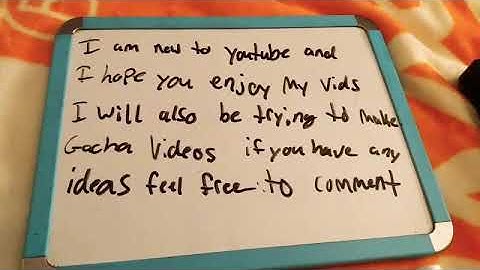 I am new to youtube and
I hope you enjoy my vids
I will also be trying to make
Gacha Videos if you have any
ideas feel free to comment